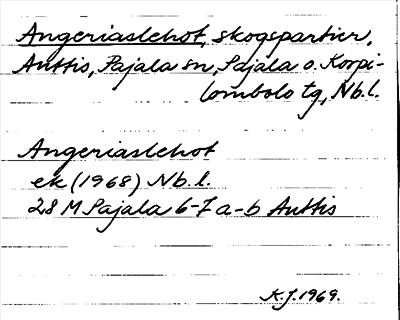 Angeriaslehot, skogspartier,
Anttis, Pajala sn, Pajala o. Korpi-
lombolo tg, Nb.l.
Angeriaslehot
ek (1968) Nb.l.
28 M Pajala 6-7 a-b Anttis
K.J. 1969.